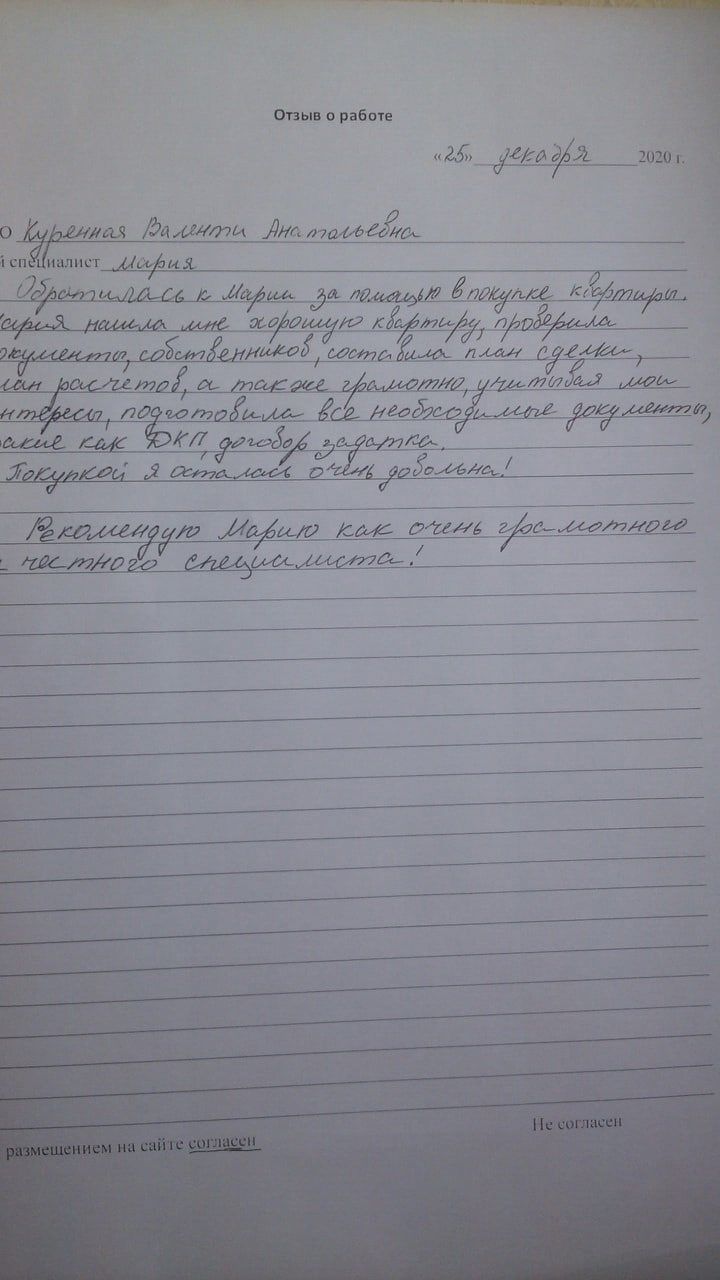 Отзыв о работе
«25» декабря 2020 г.
О Куренная Валенти Анатольевна
й специалист Мария
Обратилась к Марии за помощью в покупке квартиры.
ария нашла мне хорошую квартиру, проверила
окументы, собственников, составила план сделки,
лан расчетов, а также грамотно, учитывая мои
нтересы, подготовила все необходимые документы,
акие как ДКП, договор задатка.
Покупкой я осталась очень довольна!
Рекомендую Марию как очень грамотного
и честного специалиста!
Не согласен
размещением на сайте согласен